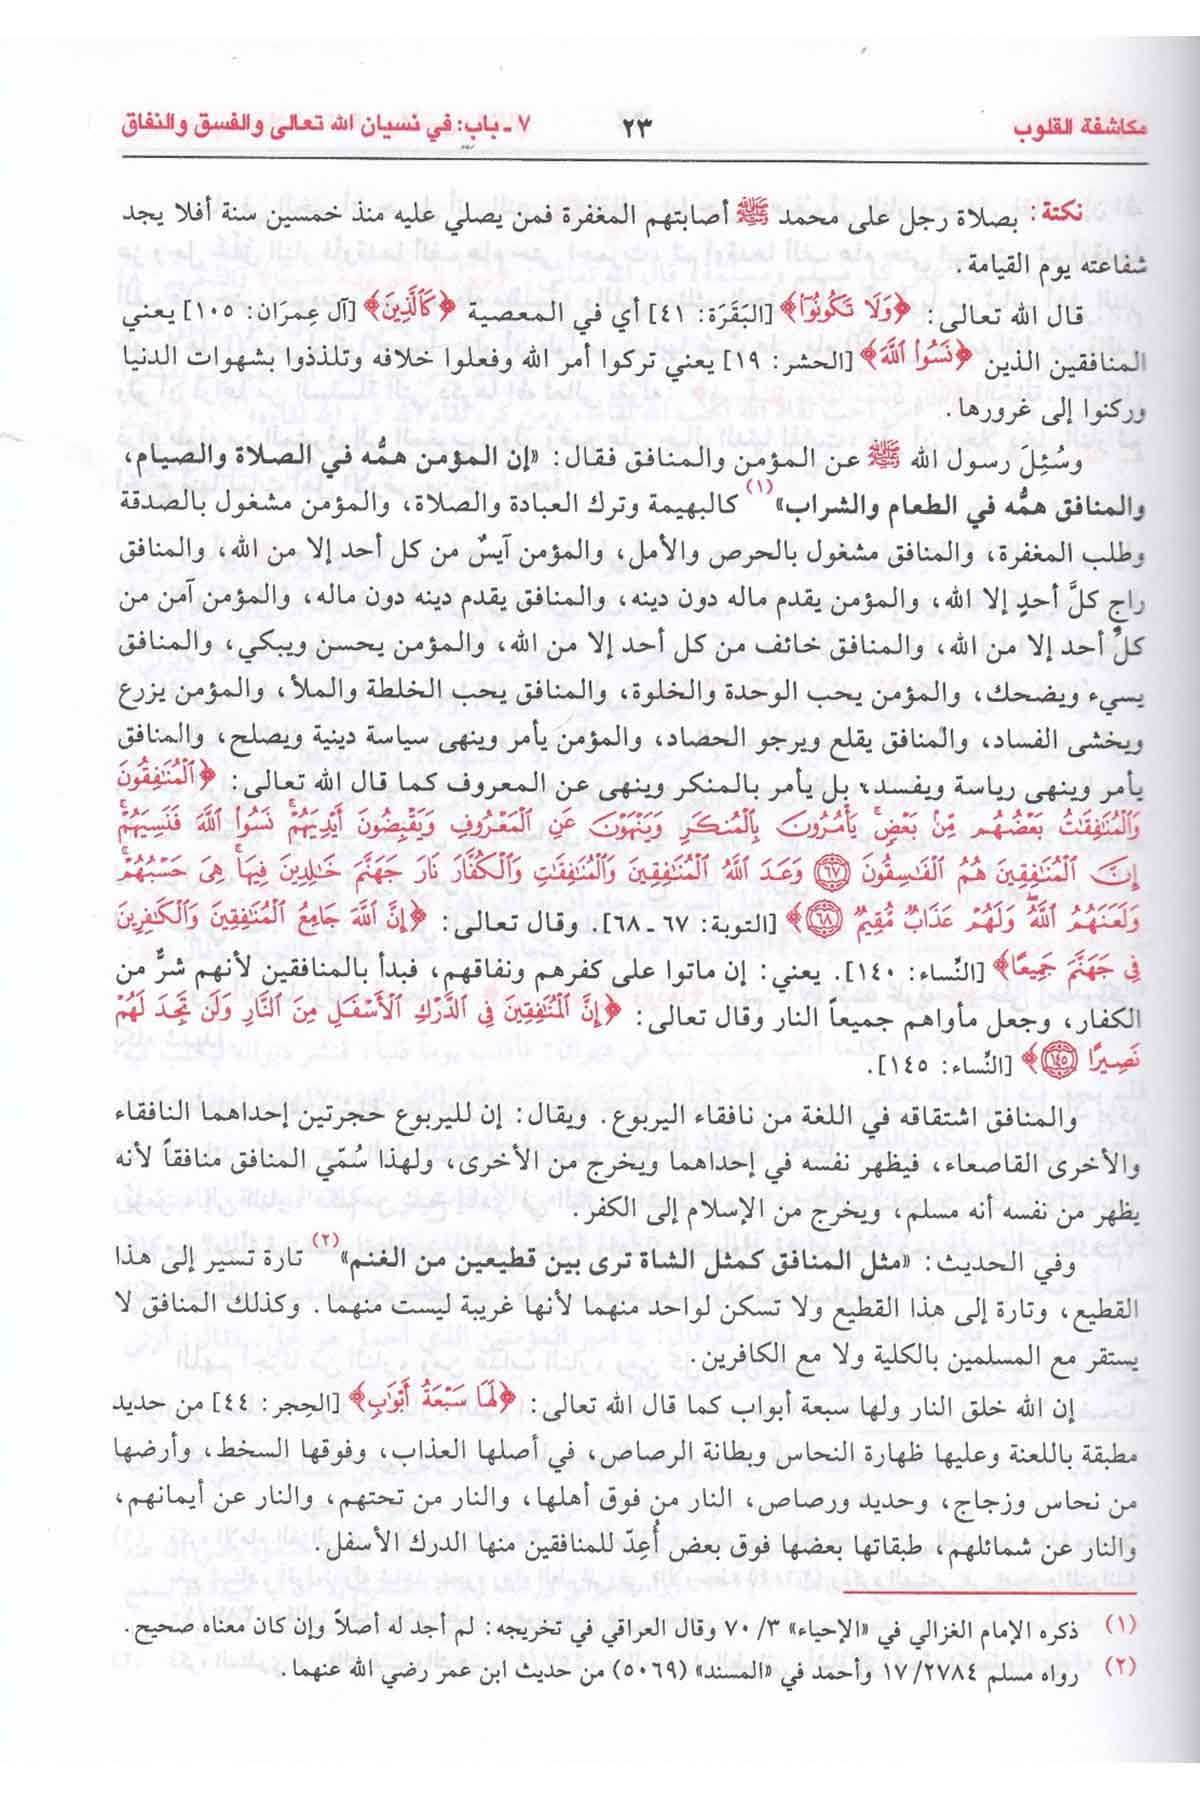 مكاشفة القلوب ٢٣ ٧ ـ باب: في نسيان الله تعالى والفسق والنفاق
نكتة: بصلاة رجل على محمد ﷺ أصابتهم المغفرة فمن يصلي عليه منذ خمسين سنة أفلا يجد
شفاعته يوم القيامة.
قال الله تعالى: ﴿وَلَا تَكُونُوا﴾ [البَقَرَة: ٤١] أي في المعصية ﴿كَالَّذِينَ﴾ [آل عِمرَان: ١٠٥] يعني
المنافقين الذين ﴿نَسُوا اللَّهَ﴾ [الحشر: ١٩] يعني تركوا أمر الله وفعلوا خلافه وتلذذوا بشهوات الدنيا
وركنوا إلى غرورها.
وسُئِلَ رسول الله ﷺ عن المؤمن والمنافق فقال: «إن المؤمن همُّه في الصلاة والصيام،
والمنافق همُّه في الطعام والشراب»(١) كالبهيمة وترك العبادة والصلاة، والمؤمن مشغول بالصدقة
وطلب المغفرة، والمنافق مشغول بالحرص والأمل، والمؤمن آيسٌ من كل أحد إلا من الله، والمنافق
راجٍ كلَّ أحدٍ إلا الله، والمؤمن يقدم ماله دون دينه، والمنافق يقدم دينه دون ماله، والمؤمن آمن من
كلِّ أحد إلا من الله، والمنافق خائف من كل أحد إلا من الله، والمؤمن يحسن ويبكي، والمنافق
يسيء ويضحك، والمؤمن يحب الوحدة والخلوة، والمنافق يحب الخلطة والملأ، والمؤمن يزرع
ويخشى الفساد، والمنافق يقلع ويرجو الحصاد، والمؤمن يأمر وينهى سياسة دينية ويصلح، والمنافق
يأمر وينهى رياسة ويفسد، بل يأمر بالمنكر وينهى عن المعروف كما قال الله تعالى: ﴿الْمُنَافِقُونَ
وَالْمُنَافِقَاتُ بَعْضُهُم مِّنْ بَعْضٍ يَأْمُرُونَ بِالْمُنكَرِ وَيَنْهَوْنَ عَنِ الْمَعْرُوفِ وَيَقْبِضُونَ أَيْدِيَهُمْ نَسُوا اللَّهَ فَنَسِيَهُمْ
إِنَّ الْمُنَافِقِينَ هُمُ الْفَاسِقُونَ ٦٧ وَعَدَ اللَّهُ الْمُنَافِقِينَ وَالْمُنَافِقَاتِ وَالْكُفَّارَ نَارَ جَهَنَّمَ خَالِدِينَ فِيهَا هِيَ حَسْبُهُمْ
وَلَعَنَهُمُ اللَّهُ وَلَهُمْ عَذَابٌ مُّقِيمٌ ٦٨﴾ [التوبة: ٦٧ ـ ٦٨]. وقال تعالى: ﴿إِنَّ اللَّهَ جَامِعُ الْمُنَافِقِينَ وَالْكَافِرِينَ
فِي جَهَنَّمَ جَمِيعًا﴾ [النِّساء: ١٤٠]. يعني: إن ماتوا على كفرهم ونفاقهم، فبدأ بالمنافقين لأنهم شرٌّ من
الكفار، وجعل مأواهم جميعاً النار وقال تعالى: ﴿إِنَّ الْمُنَافِقِينَ فِي الدَّرْكِ الْأَسْفَلِ مِنَ النَّارِ وَلَن تَجِدَ لَهُمْ
نَصِيرًا ١٤٥﴾ [النِّساء: ١٤٥].
والمنافق اشتقاقه في اللغة من نافقاء اليربوع. ويقال: إن لليربوع حجرتين إحداهما النافقاء
والأخرى القاصعاء، فيظهر نفسه في إحداهما ويخرج من الأخرى، ولهذا سُمّي المنافق منافقاً لأنه
يظهر من نفسه أنه مسلم، ويخرج من الإسلام إلى الكفر.
وفي الحديث: «مثل المنافق كمثل الشاة ترى بين قطيعين من الغنم»(٢) تارة تسير إلى هذا
القطيع، وتارة إلى هذا القطيع ولا تسكن لواحد منهما لأنها غريبة ليست منهما. وكذلك المنافق لا
يستقر مع المسلمين بالكلية ولا مع الكافرين.
إن الله خلق النار ولها سبعة أبواب كما قال الله تعالى: ﴿لَهَا سَبْعَةُ أَبْوَابٍ﴾ [الحِجر: ٤٤] من حديد
مطبقة باللعنة وعليها ظهارة النحاس وبطانة الرصاص، في أصلها العذاب، وفوقها السخط، وأرضها
من نحاس وزجاج، وحديد ورصاص، النار من فوق أهلها، والنار من تحتهم، والنار عن أيمانهم،
والنار عن شمائلهم، طبقاتها بعضها فوق بعض أُعِدّ للمنافقين منها الدرك الأسفل.
(١) ذكره الإمام الغزالي في «الإحياء» ٣/ ٧٠ وقال العراقي في تخريجه: لم أجد له أصلاً وإن كان معناه صحيح.
(٢) رواه مسلم ٢٧٨٤/ ١٧ وأحمد في «المسند» (٥٠٦٩) من حديث ابن عمر رضي الله عنهما.